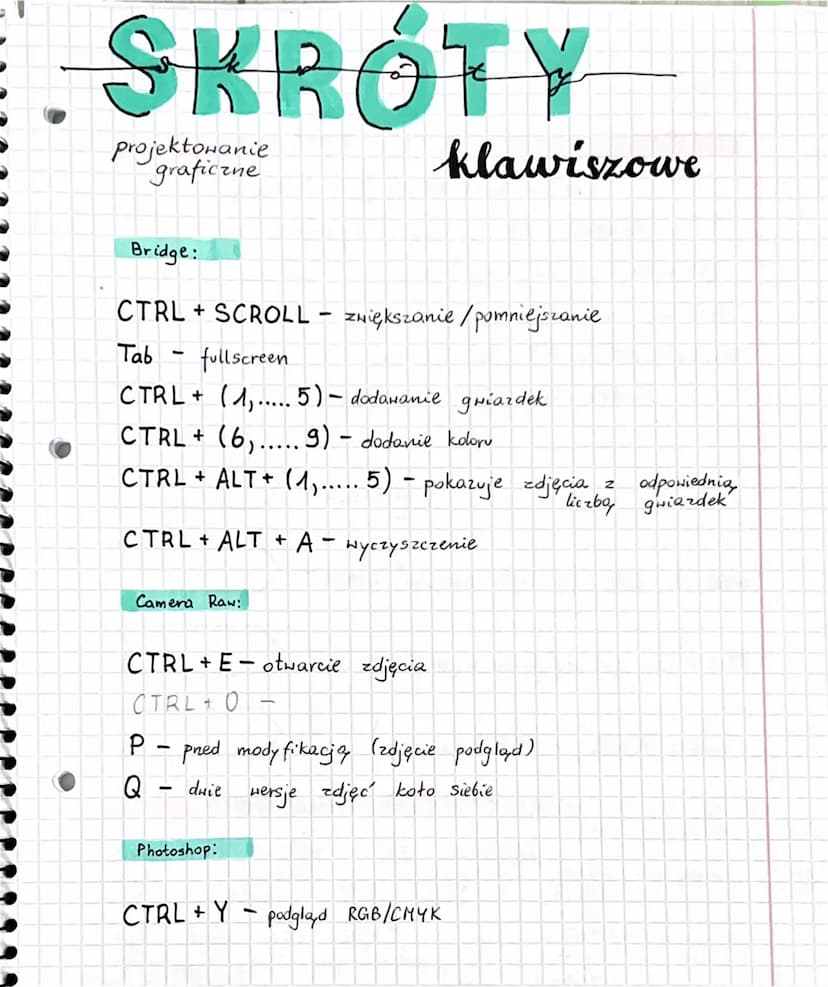 SKRÓTY
skróty
projektowanie
graficzne
klawiszowe
Bridge:
CTRL + SCROLL - zwiększanie/pomniejszanie
Tab - fullscreen
CTRL + (1,.....5) - dodawanie gwiazdek
CTRL + (6,.....9) - dodanie koloru
CTRL + ALT + (1,.....5) - pokazuje zdjęcia z odpowiednią
liczbą gwiazdek
CTRL + ALT + A - wyczyszczenie
Camera Raw:
CTRL + E - otwarcie zdjęcia
CTRL + O -
P - przed modyfikacją (zdjęcie podgląd)
Q - dwie wersje zdjęć koło siebie
Photoshop:
CTRL + Y - podgląd RGB/CMYK